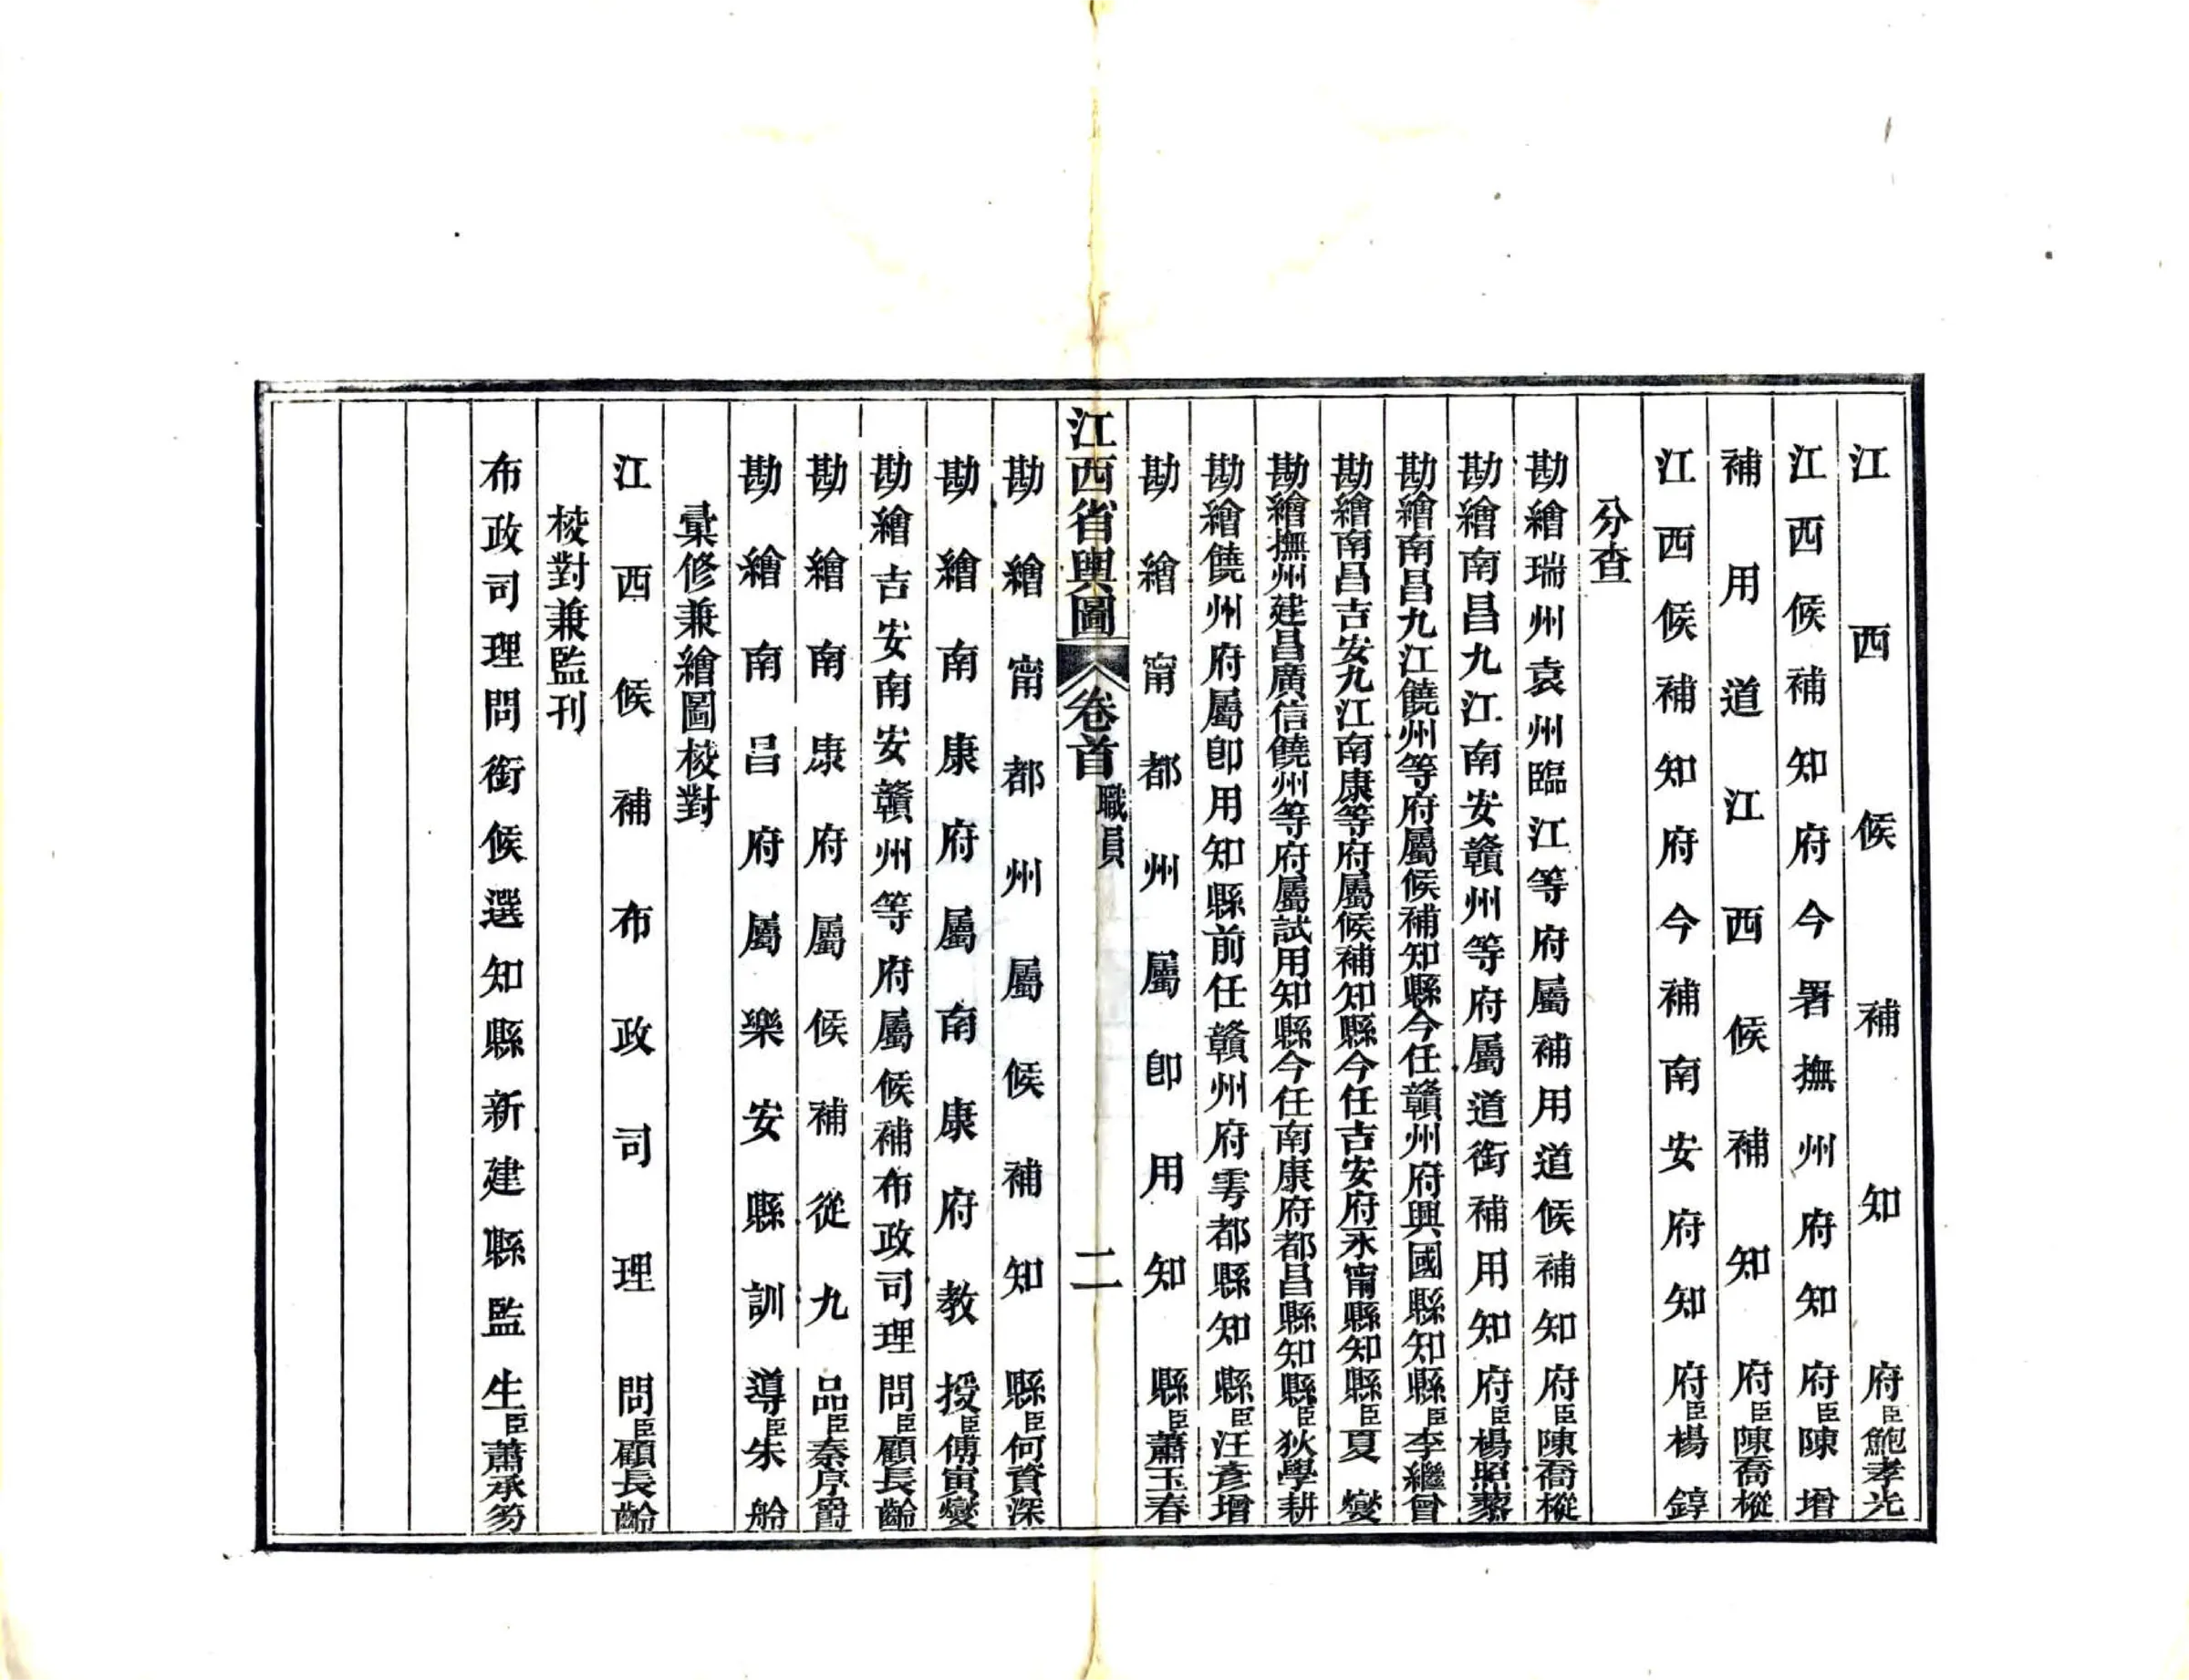 江西候補知府臣鮑孝光
江西候補知府今署撫州府知府臣陳增
補用道江西候補知府臣陳喬樅
江西候補知府今補南安府知府臣楊錞
分查
勘繪瑞州袁州臨江等府屬補用道候補知府臣陳喬樅
勘繪南昌九江南安贛州等府屬道銜補用知府臣楊照藜
勘繪南昌九江饒州等府屬候補知縣今任贛州府興國縣知縣臣李繼曾
勘繪南昌吉安九江南康等府屬候補知縣今任吉安府永甯縣知縣臣夏燮
勘繪撫州建昌廣信饒州等府屬試用知縣今任南康府都昌縣知縣臣狄學耕
勘繪饒州府屬卽用知縣前任贛州府雩都縣知縣臣汪彥增
勘繪甯都州屬卽用知縣臣蕭玉春
江西省輿圖 卷首 職員 二
勘繪甯都州屬候補知縣臣何資深
勘繪南康府屬南康府教授臣傅寅燮
勘繪吉安南安贛州等府屬候補布政司理問臣顧長齡
勘繪南康府屬候補從九品臣秦序爵
勘繪南昌府屬樂安縣訓導臣朱舲
彙修兼繪圖校對
江西候補布政司理問臣顧長齡
校對兼監刊
布政司理問銜候選知縣新建縣監生臣蕭承笏